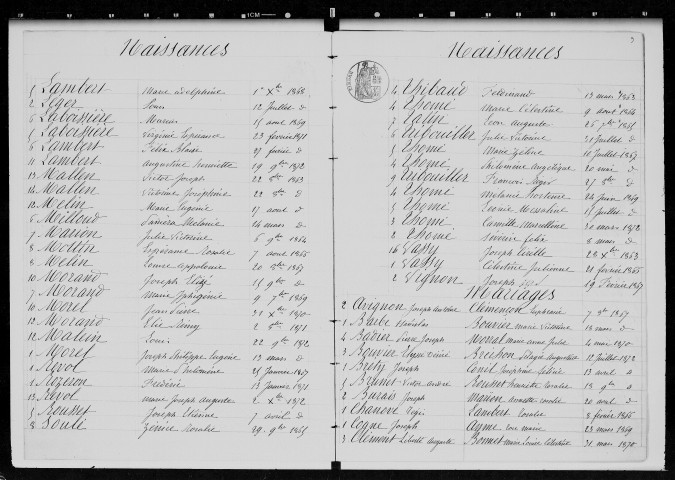 Naissances
5 Lambert Marie Delphine 1er Xbre 1868
2 Leger Louis 12 Juillet d
6 Laboissière Marius 15 août 1869
1 Laboissière Virginie Espérance 23 février 1871
6 Lambert Felix Blaise 27 février d
11 Lambert Augustine Henriette 19 9bre 1872
13 Mallen Victor Joseph 22 8bre 1863
14 Mallen Victoire Joséphine 22 8bre d
12 Melin Marie Eugénie 17 août d
6 Milloud Mélanie 14 mars d
7 Marion Julie Victorine 6 9bre 1864
8 Mottin Espérance Rosalie 7 août 1865
8 Melin Louise Appolonie 20 8bre 1867
10 Morand Joseph Elizée 15 9bre d
7 Morand Marie Iphigénie 9 7bre 1869
10 Morel Jean Pierre 31 Xbre 1870
12 Morand Elie Remy 2 8bre 1871
12 Malein Louis 22 9bre 1872
1 Morel Joseph Philippe Eugène 13 mars d
1 Ravol Marie Philomène 25 Janvier 1867
1 Rozeron Frédéric 13 Janvier 1871
13 Ravol Marie Joseph Auguste 2 Xbre 1872
5 Rousset Joseph Etienne 7 avril d
8 Soulé Zénice Rosalie 29 9bre 1865
3
Naissances
4 Thibaud Ferdinand 13 mars 1863
4 Thomé Marie Célestine 9 août 1864
7 Talin Léon Auguste 26 7bre 1865
6 Tubouiller Julie Antoine 31 Juillet d
5 Thomé Marie Zéline 16 Juillet 1867
4 Thomé Philomène Angélique 20 mai d
9 Tubouiller François Léger 27 8bre d
4 Thomé Mélanie Hortense 24 Juin 1869
5 Thomé Léonie Messaline 15 Juillet d
3 Thomé Camille Marcelline 30 mars 1872
2 Thomé Séverin Felix 8 mars d
16 Vassy Joseph Emille 28 Xbre 1863
1 Vassy Célestine Julienne 21 février 1865
2 Vignon Joseph 19 février 1867
Mariages
2 Avignon Joseph Antoine Clémençon Euphrasie 7 8bre 1867
1 Barbe Stanislas Bouvier Marie Victorine 13 mars d
4 Badier Pierre Joseph Morval Marie Anne Julie 4 mai 1870
3 Bouvier Elysée Pierre Brechon Pélagie Augustine 12 Juillet 1872
1 Brety Joseph Conel Joséphine Célinie 13 avril d
5 Brunet Victor André Rousset Henriette Coralie 18 9bre d
2 Burais Joseph Mignon Annette Coralie 20 avril d
1 Chanove Régis Lambert Coralie 8 février 1866
1 Cogne Joseph Ayme Rose Marie 23 mars 1869
3 Clément Auguste Bonnet Marie Louise Célestine 31 mars 1870